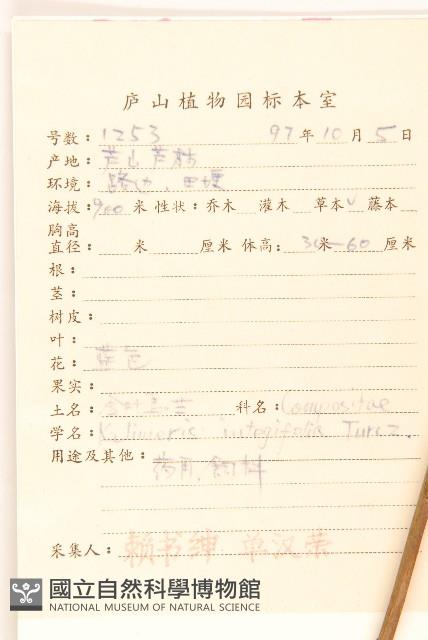 庐山植物园标本室
号数：1253 97年10月5日
产地：芦山芦林
环境：路边、田埂
海拔：900米 性状：乔木 灌木 草本√ 藤本
胸高
直径： 米 厘米 体高：30米—60厘米
根：
茎：
树皮：
叶：
花：蓝色
果实：
土名： 科名：Compositae
学名：Kalimeris integifolia Turcz.
用途及其他：
药用、饲料
采集人：赖书绅 单汉荣
國立自然科學博物館
NATIONAL MUSEUM OF NATURAL SCIENCE